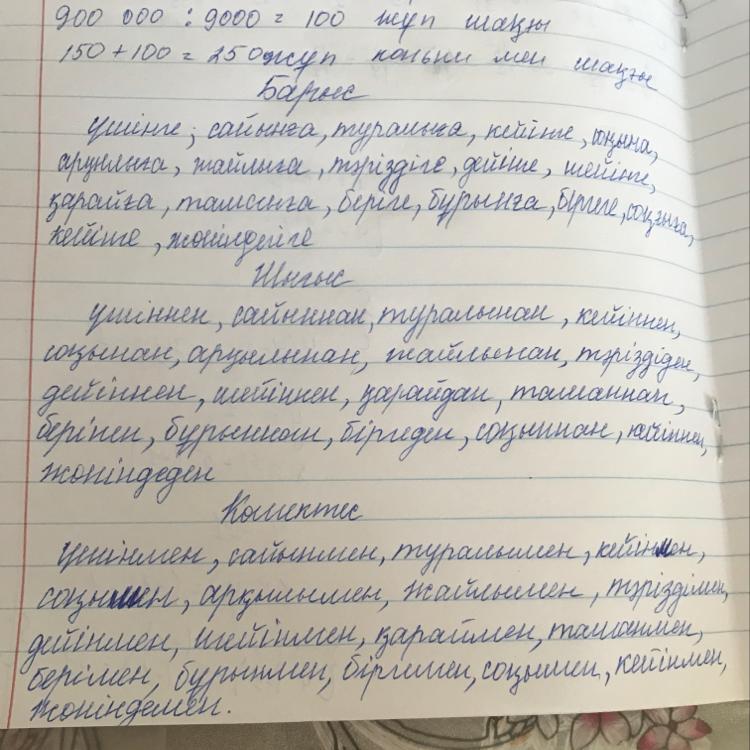 900 000 : 9000 = 100 жұп шаңғы
150 + 100 = 250 жұп коньки мен шаңғы
Барыс
үшінге, сайынға, туралыға, кейінге, соңына,
арқылыға, жайлыға, тәріздіге, дейінге, шейінге,
қарайға, таманға, беріге, бұрынға, біргеге, соңынға,
кейінге, жөніндегіге
Шығыс
үшіннен, сайыннан, туралынан, кейіннен,
соңынан, арқылынан, жайлынан, тәріздіден,
дейіннен, шейіннен, қарайдан, таманнан,
беріпен, бұрыннан, біргеден, соңыннан, кейіннен,
жөніндеден
Көмектес
үшінмен, сайынмен, туралымен, кейінмен,
соңымен, арқылымен, жайлымен, тәріздімен,
дейінмен, шейінмен, қараймен, таманмен,
берімен, бұрынмен, біргемен, соңымен, кейінмен,
жөніндемен.